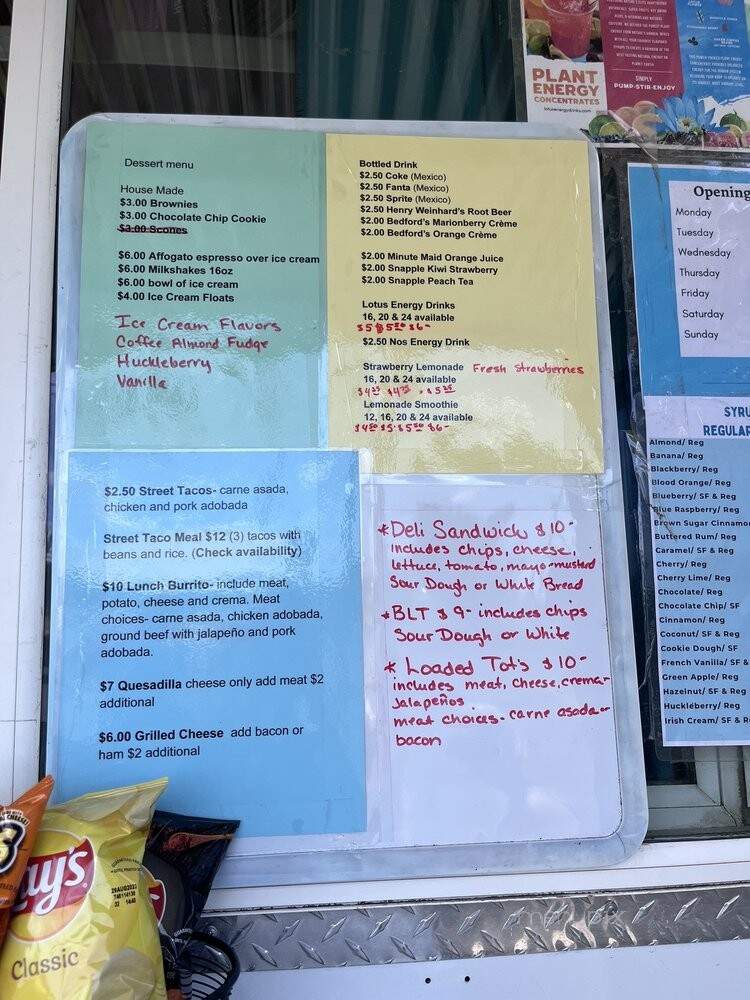 Dessert menu
House Made
$3.00 Brownies
$3.00 Chocolate Chip Cookie
$3.00 Scones
$6.00 Affogato espresso over ice cream
$6.00 Milkshakes 16oz
$6.00 bowl of ice cream
$4.00 Ice Cream Floats
Ice Cream Flavors
Coffee Almond Fudge
Huckleberry
Vanilla
Bottled Drink
$2.50 Coke (Mexico)
$2.50 Fanta (Mexico)
$2.50 Sprite (Mexico)
$2.50 Henry Weinhard's Root Beer
$2.00 Bedford's Marionberry Crème
$2.00 Bedford's Orange Crème
$2.00 Minute Maid Orange Juice
$2.00 Snapple Kiwi Strawberry
$2.00 Snapple Peach Tea
Lotus Energy Drinks
16, 20 & 24 available
$5 $5.50 $6-
$2.50 Nos Energy Drink
Strawberry Lemonade Fresh Strawberries
16, 20 & 24 available
Lemonade Smoothie
12, 16, 20 & 24 available
$4.50 $5 $5.50 $6-
$2.50 Street Tacos- carne asada,
chicken and pork adobada
Street Taco Meal $12 (3) tacos with
beans and rice. (Check availability)
$10 Lunch Burrito- include meat,
potato, cheese and crema. Meat
choices- carne asada, chicken adobada,
ground beef with jalapeño and pork
adobada.
$7 Quesadilla cheese only add meat $2
additional
$6.00 Grilled Cheese add bacon or
ham $2 additional
*Deli Sandwich $10-
includes chips, cheese,
lettuce, tomato, mayo-mustard
Sour Dough or White Bread
*BLT $9- includes chips
Sour Dough or White
* Loaded Tot's $10-
includes meat, cheese, crema-
Jalapeños
meat choices- carne asada-
bacon
PLANT
ENERGY
CONCENTRATES
SIMPLY
PUMP-STIR-ENJOY
Opening
Monday
Tuesday
Wednesday
Thursday
Friday
Saturday
Sunday
SYRU
REGULAR
Almond/ Reg
Banana/ Reg
Blackberry/ Reg
Blood Orange/ Reg
Blueberry/ SF & Reg
Blue Raspberry/ Reg
Brown Sugar Cinnamo
Buttered Rum/ Reg
Caramel/ SF & Reg
Cherry/ Reg
Cherry Lime/ Reg
Chocolate/ Reg
Chocolate Chip/ SF
Cinnamon/ Reg
Coconut/ SF & Reg
Cookie Dough/ SF
French Vanilla/ SF &
Green Apple/ Reg
Hazelnut/ SF & Reg
Huckleberry/ Reg
Irish Cream/ SF & R
ay's
Classic